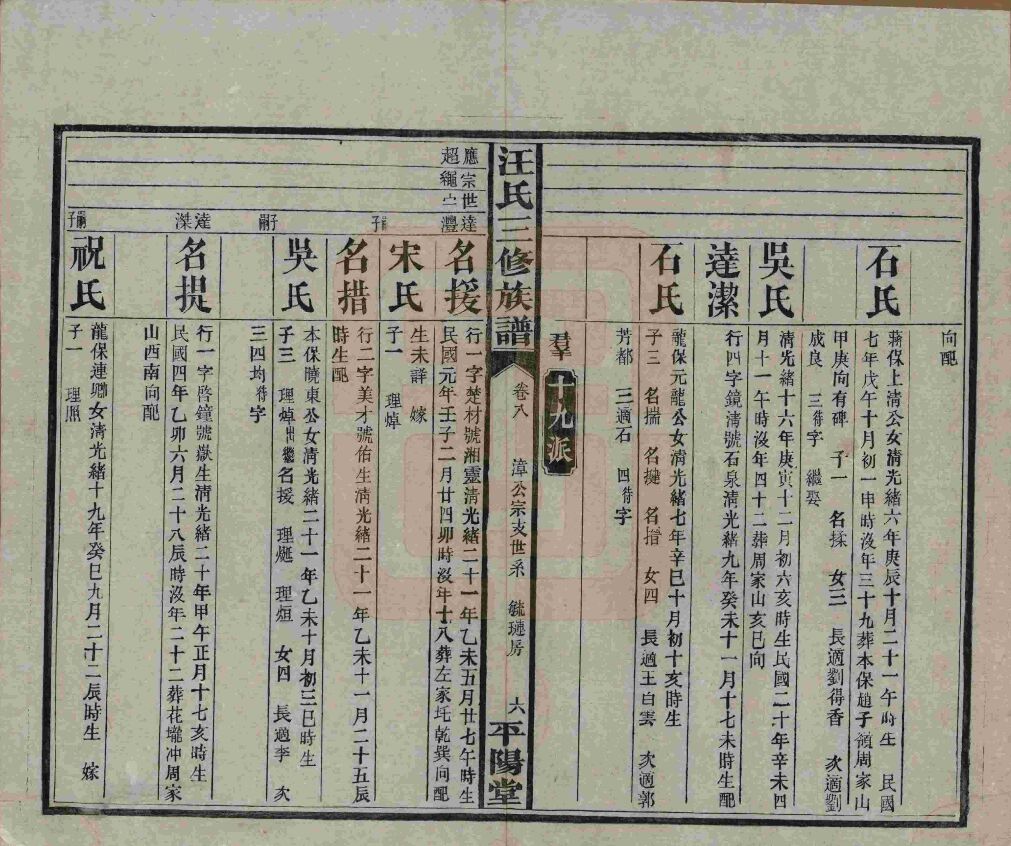 向配
石氏
蔣保上清公女清光緒六年庚辰十月二十一午時生 民國
七年戊午十月初一申時沒年三十九葬本保趙子嶺周家山
甲庚向有碑 子一 名揉 女三 長適劉得香 次適劉
成良 三待字 繼娶
吳氏
清光緒十六年庚寅十二月初六亥時生民國二十年辛未四
月十一午時沒年四十二葬周家山亥巳向
達潔
行四字鏡清號石泉清光緒九年癸未十一月十七未時生配
石氏
龍保元龍公女清光緒七年辛巳十月初十亥時生
子三 名揣 名揵 名措 女四 長適王白雲 次適郭
芳都 三適石 四待字
羣
十九派
汪氏三修族譜
卷八
漳公宗支世系
毓璉房
六
平陽堂
應宗世達
超繩亡灃
名援
行一字楚材號湘靈清光緒二十一年乙未五月廿七午時生
民國元年壬子二月廿四卯時沒年十八葬左家圫乾巽向配
宋氏
生未詳 嫁
子一 理焯
嗣子
名措
行二字美才號佑生清光緒二十一年乙未十一月二十五辰
時生配
吳氏
本保曉東公女清光緒二十一年乙未十月初三巳時生
子三 理焯出繼名援 理烻 理烜 女四 長適李 次
三四均待字
嗣子
達滐
名提
行一字啓鐘號嶽生清光緒二十年甲午正月十七亥時生
民國四年乙卯六月二十八辰時沒年二十二葬花壠冲周家
山酉南向配
祝氏
龍保連卿女清光緒十九年癸巳九月二十二辰時生 嫁
子一 理照
嗣子